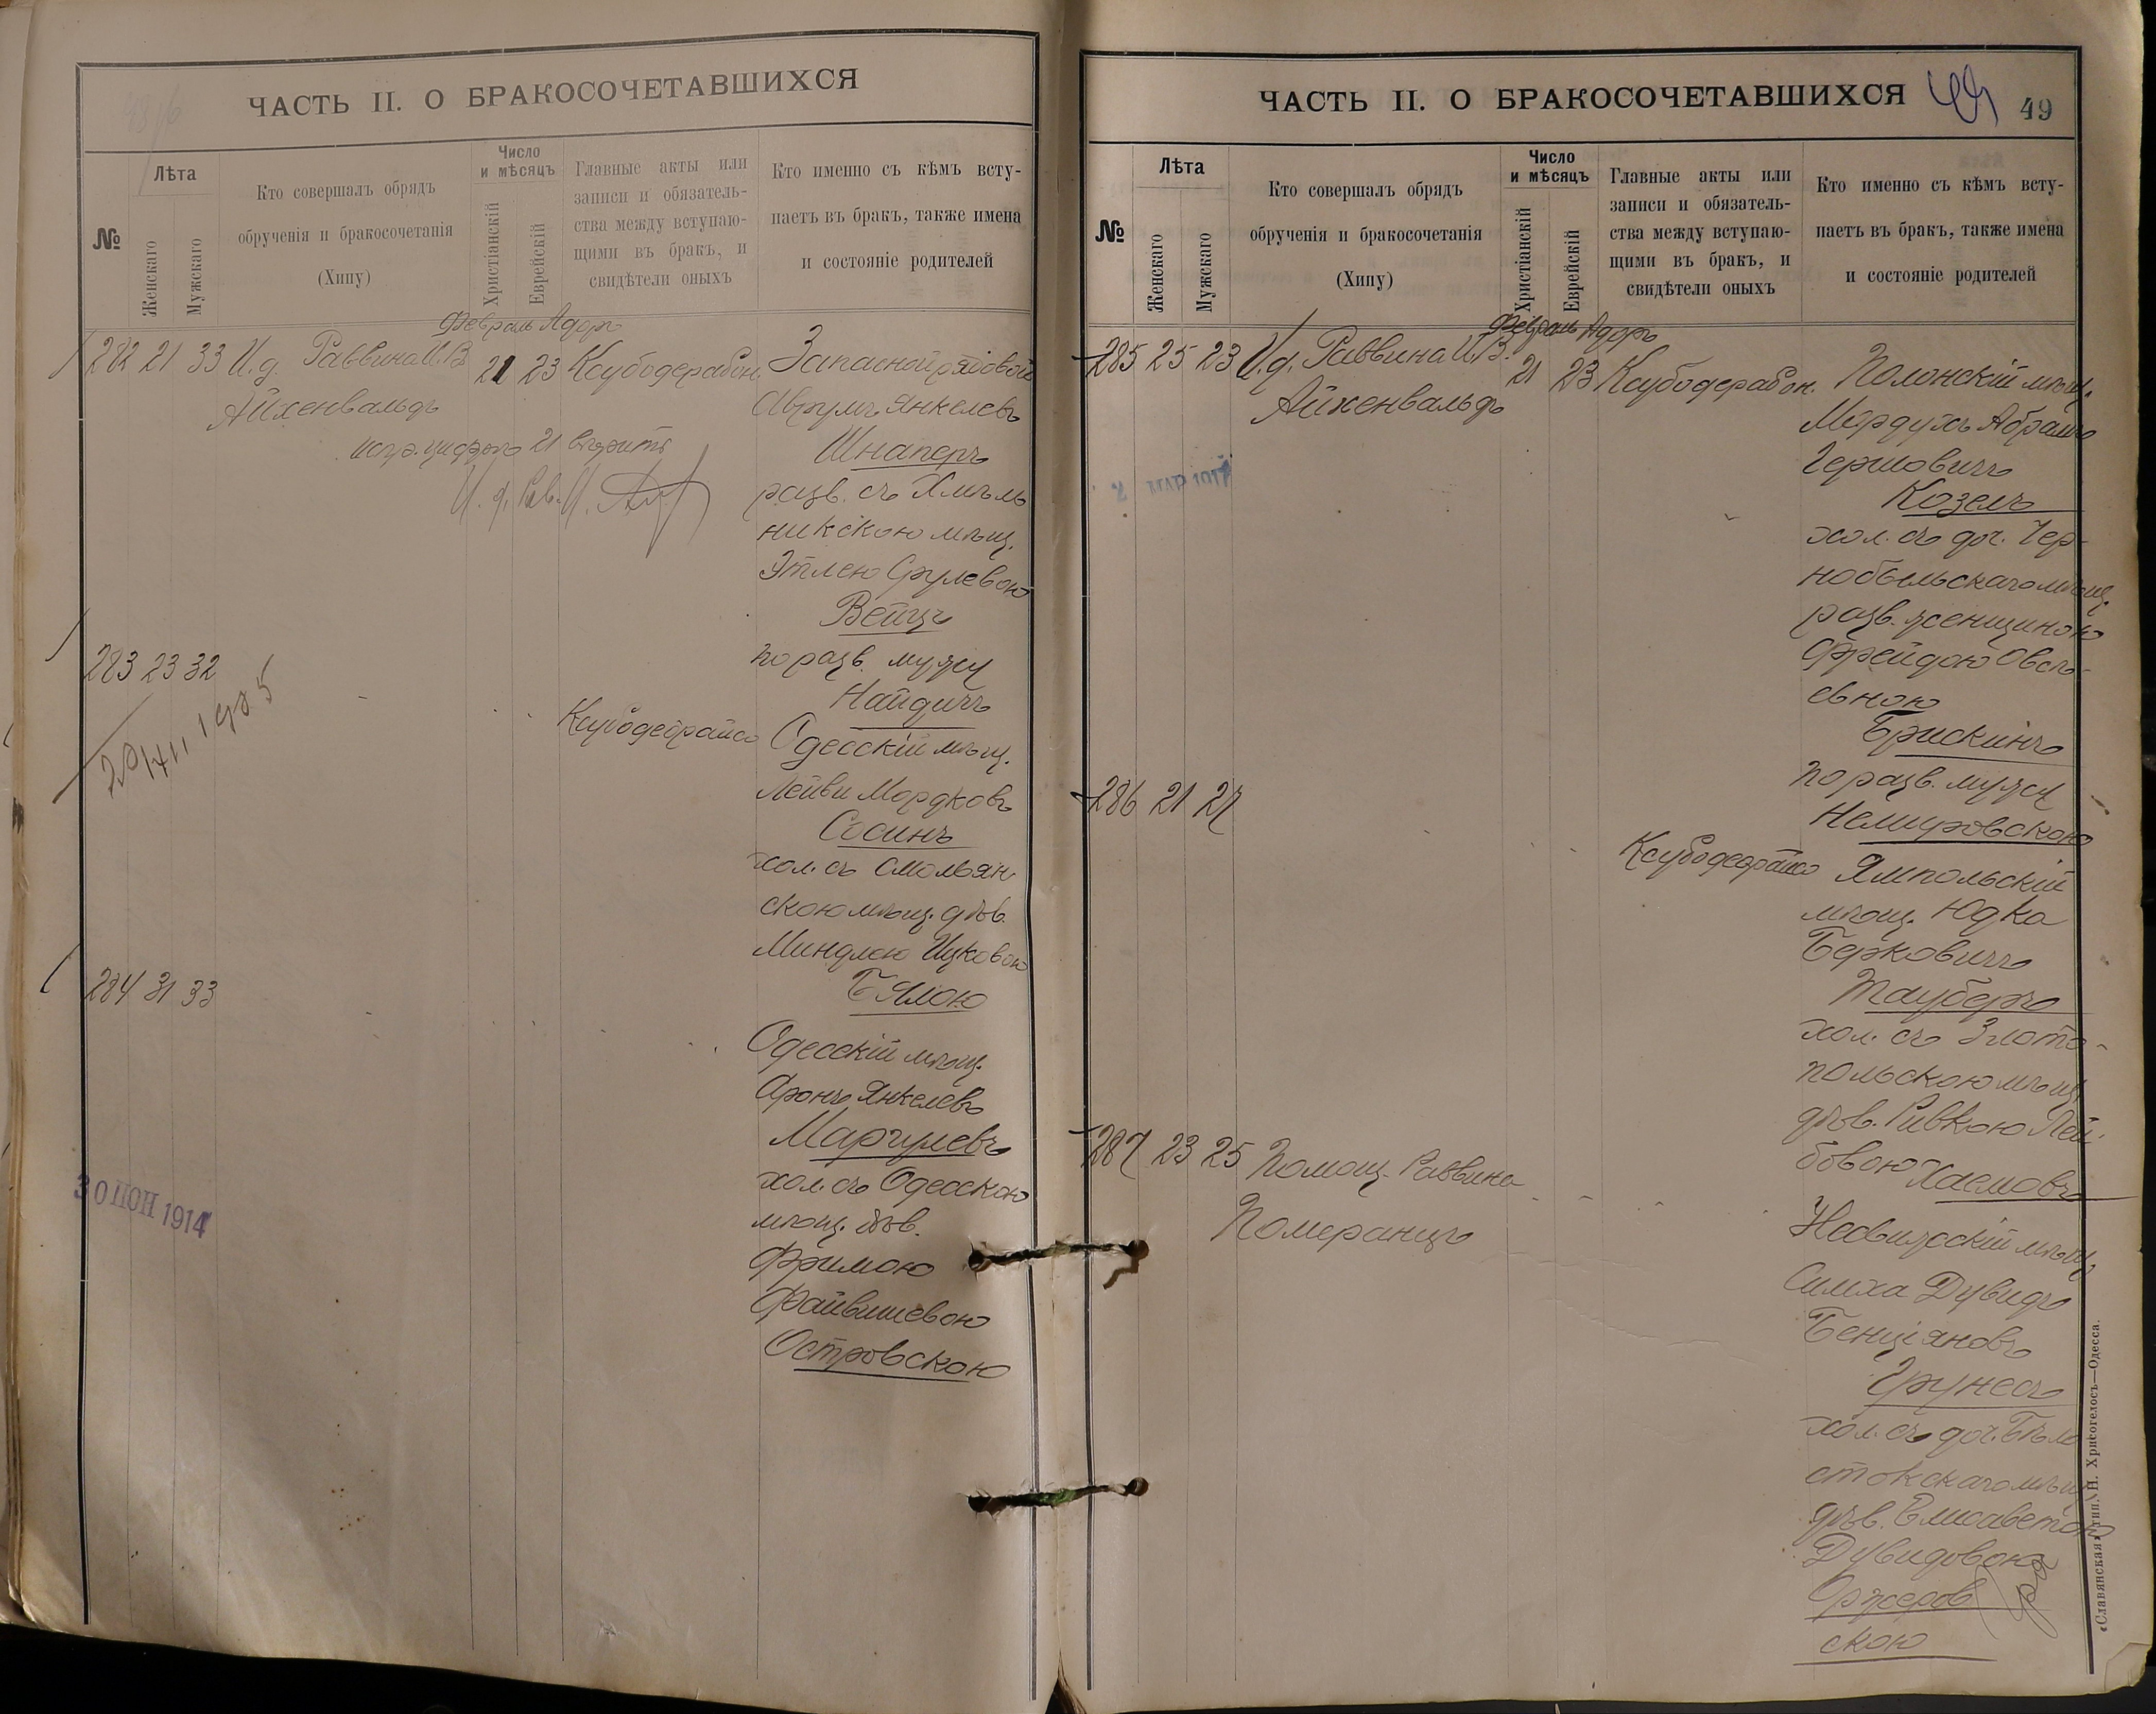 ЧАСТЬ II. О БРАКОСОЧЕТАВШИХСЯ
№
Лѣта
Женскаго
Мужскаго
Кто совершалъ обрядъ
обрученія и бракосочетанія
(Хипу)
Число
и мѣсяцъ
Христіанскій
Еврейскій
Главные акты или
записи и обязатель-
ства между вступаю-
щими въ бракъ, и
свидѣтели оныхъ
Кто именно съ кѣмъ всту-
паетъ въ бракъ, также имена
и состояніе родителей
Февраль Адоръ
282 21 33 И.д. Раввина И.В.
Айхенвальдъ
21 23 Ксубодерабон.
испр. цифрою 21 вѣрить
И. д. Рав. И.
Запасной рядовой
Аврумъ Янкелевъ
Шнаперъ
разв. съ Хмѣль
никскою мѣщ.
Этлею Срулевою
Вейцъ
по разв. мужу
Найдичъ
283 23 32
Ксубодеорайсо
Одесскій мѣщ.
Лейви Мордковъ
Сосинъ
хол. съ Смольян-
скою мѣщ. дѣв.
Миндлею Ицковою
Бялою
284 31 33
Одесскій мѣщ.
Аронъ Янкелевъ
Маргулевъ
хол. съ Одесскою
мѣщ. дѣв.
Фримою
Файвишевою
Островскою
1914
ЧАСТЬ II. О БРАКОСОЧЕТАВШИХСЯ
49
49
№
Лѣта
Женскаго
Мужскаго
Кто совершалъ обрядъ
обрученія и бракосочетанія
(Хипу)
Число
и мѣсяцъ
Христіанскій
Еврейскій
Главные акты или
записи и обязатель-
ства между вступаю-
щими въ бракъ, и
свидѣтели оныхъ
Кто именно съ кѣмъ всту-
паетъ въ бракъ, также имена
и состояніе родителей
Февраль Адоръ
285 25 23 И.д. Раввина И.В.
Айхенвальдъ
21 23 Ксубодерабон.
2 МАР 1917
Полонскій мѣщ.
Мордухъ Абрамъ
Гершовичъ
Козелъ
хол. съ доч. Чер-
нобыльскаго мѣщ.
разв. женщиною
Фрейдою Овсѣ-
евною
Брискинъ
по разв. мужу
Немировскою
286 21 27
Ксубодеорайсо
Ямпольскій
мѣщ. Юдка
Берковичъ
Тауберъ
хол. съ Злато-
польскою мѣщ.
дѣв. Ривкою Лей-
бовою Хаемовъ
287 23 25 Помощ. Раввина
Померанцъ
Несвижскій мѣщ.
Симха Дувидъ
Бенціановъ
Грунесъ
хол. съ доч. Бѣло
стокскаго мѣщ.
дѣв. Елисаветою
Дувидовою
Оржеров
скою
«Славянская» тип. Н. Хрисогелосъ—Одесса.